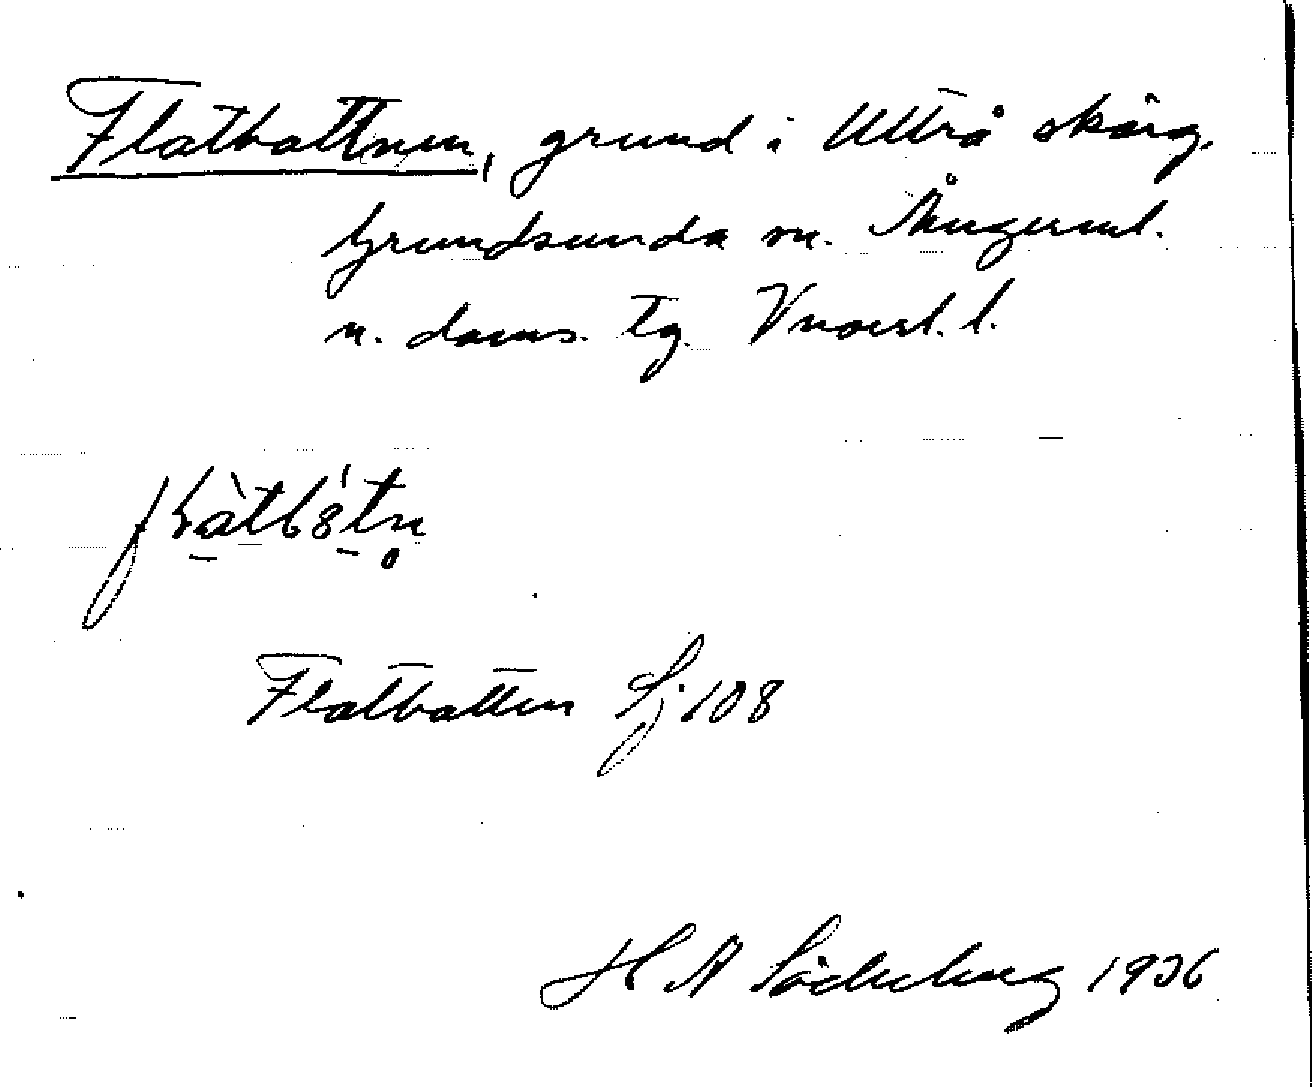 Flatbattnen, grund i Ulvö skärg.
Grundsunda sn. Ångerml.
n. doms. tg. Vnorrl. l.
Flatbatten Sj 108
H A Söderberg 1936